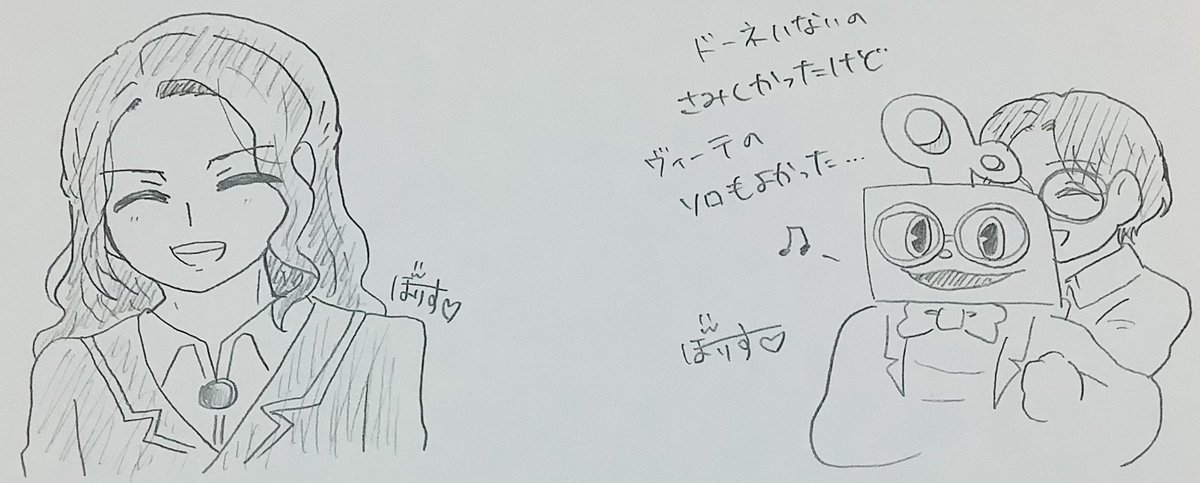 ドーネいないの
さみしかったけど
ヴィーテの
ソロもよかった…
ぼりす♡
ぼりす♡